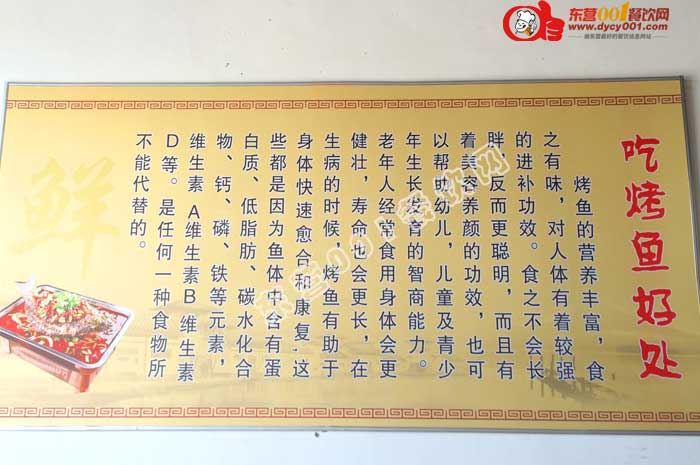 东营001餐饮网
www.dycy001.com
做东营最好的餐饮信息网站
吃烤鱼好处
烤鱼的营养丰富，食
之有味，对人体有着较强
的进补功效。食之不会长
胖，反而更聪明，而且有
着美容养颜的功效，也可
以帮助幼儿，儿童及青少
年生长发育的智商能力。
老年人经常食用身体会更
健壮，寿命也会更长，在
生病的时候，烤鱼有助于
身体快速愈合和康复.这
些都是因为鱼体中含有蛋
白质、低脂肪、碳水化合
物、钙、磷、铁等元素，
维生素A维生素B维生素
D等。是任何一种食物所
不能代替的。
鲜
东营001餐饮网